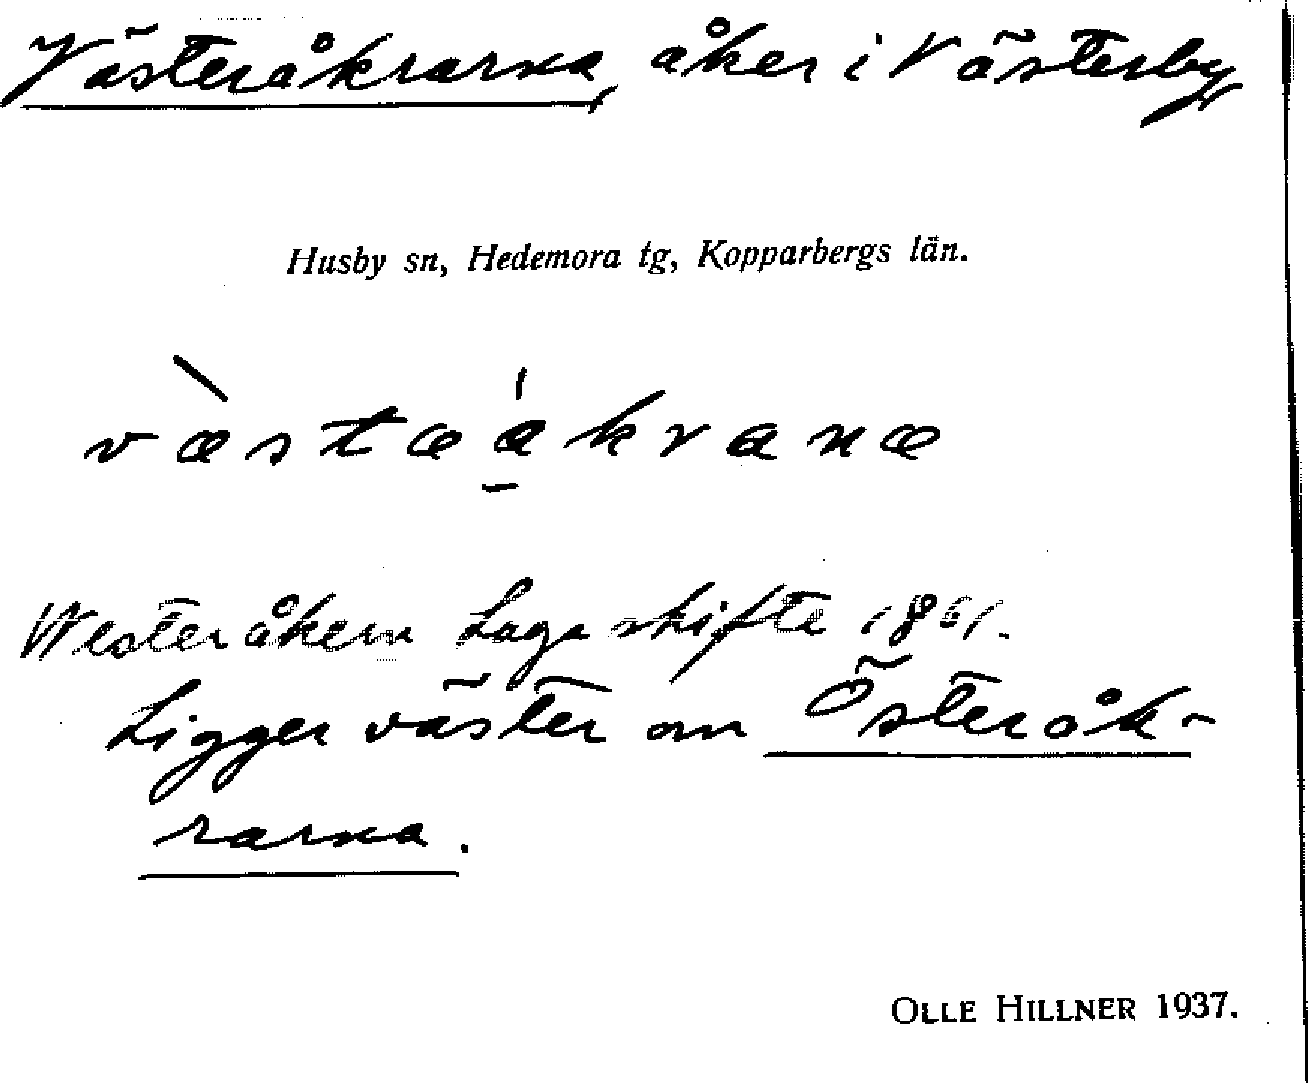 Västeråkrarna, åker i Västerby,
Husby sn, Hedemora tg, Kopparbergs län.
væstæåkranæ
Westeråkern Laga skifte 1861.
Ligger väster om Österåk-
rarna.
OLLE HILLNER 1937.